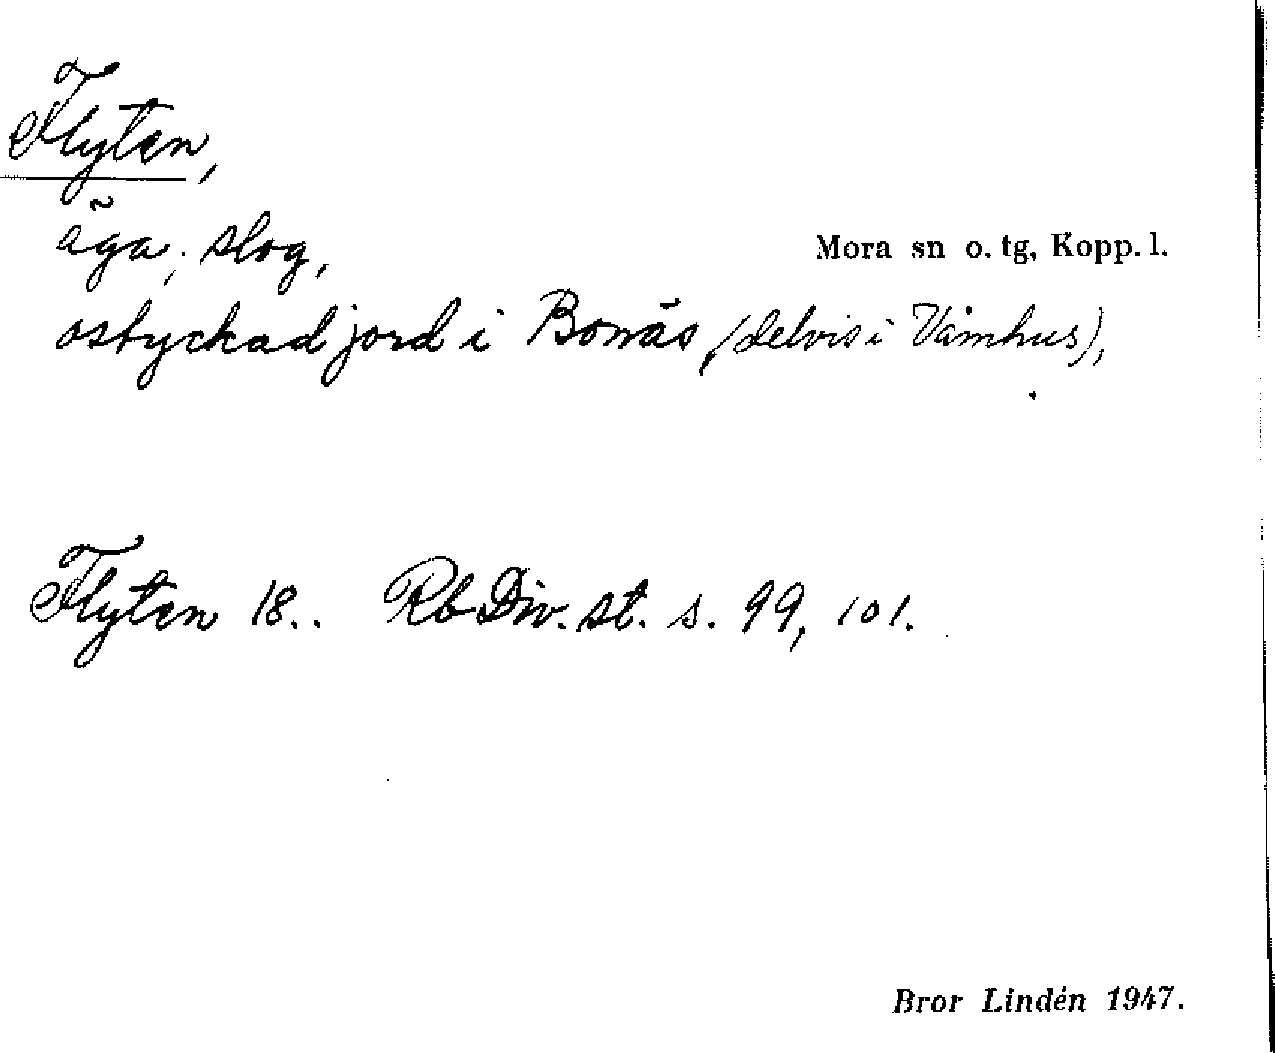 Flyten,
äga, slog,
Mora sn o. tg, Kopp. l.
ostyckad jord i Bonäs, (delvis i Våmhus),
Flyten 18.. Rb Div. st. s. 99, 101.
Bror Lindén 1947.